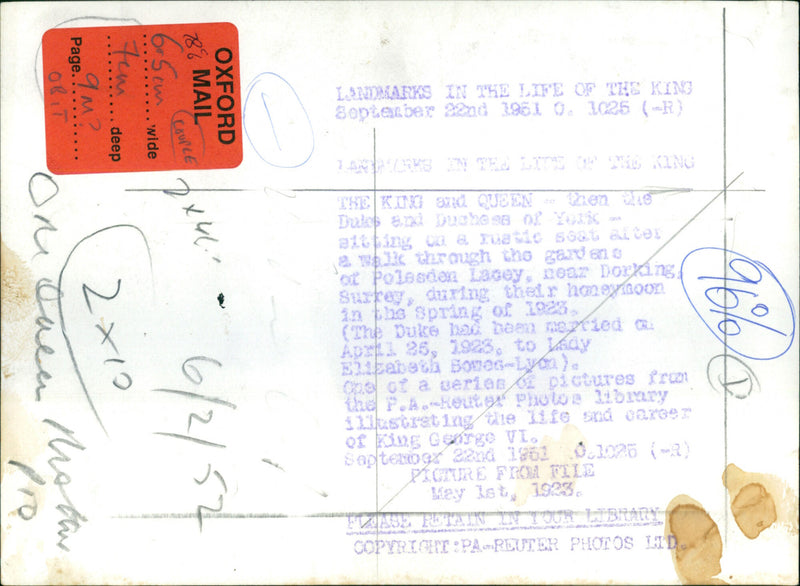 OXFORD
MAIL
78%
6.5cm wide
COUPLE
7cm deep
Page 9M?
LANDMARKS IN THE LIFE OF THE KING
September 22nd 1951 O. 1025 (-R)
LANDMARKS IN THE LIFE OF THE KING
THE KING and QUEEN - then the
Duke and Duchess of York -
sitting on a rustic seat after
a walk through the gardens
of Polesden Lacey, near Dorking,
Surrey, during their honeymoon
in the Spring of 1923.
(The Duke had been married on
April 26, 1923, to Lady
Elizabeth Bowes-Lyon).
One of a series of pictures from
the P.A.-Reuter Photos library
illustrating the life and career
of King George VI.
September 22nd 1951 O.1025 (-R)
PICTURE FROM FILE
May 1st, 1923.
PLEASE RETAIN IN YOUR LIBRARY
COPYRIGHT:PA-REUTER PHOTOS LTD.
96%
1
2 x 10
6/2/52